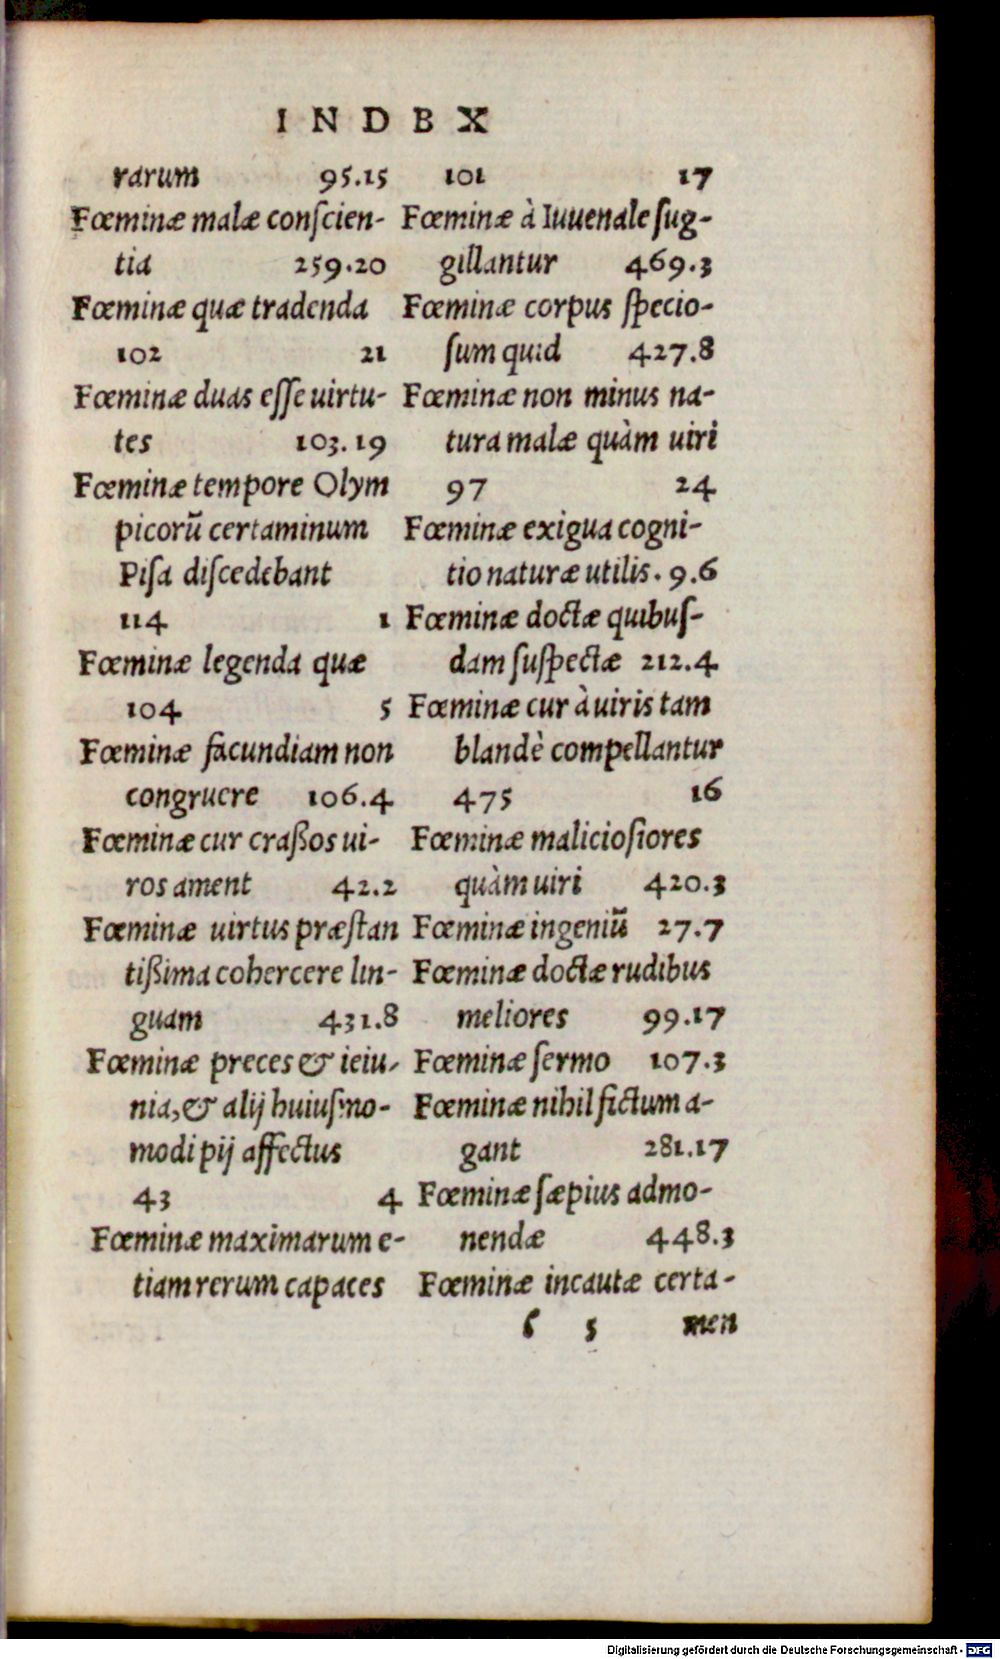 INDBX
rarum 95.15
Fœminæ malæ conſcien-
tia 259.20
Fœminæ quæ tradenda
102 21
Fœminæ duas eſſe uirtu-
tes 103.19
Fœminæ tempore Olym
picorũ certaminum
Piſa diſcedebant
114 1
Fœminæ legenda quæ
104 5
Fœminæ facundiam non
congruere 106.4
Fœminæ cur craßos ui-
ros ament 42.2
Fœminæ uirtus præſtan
tißima cohercere lin-
guam 431.8
Fœminæ preces & ieiu-
nia, & alij huiuſmo-
modi pij affectus
43 4
Fœminæ maximarum e-
tiam rerum capaces
101 17
Fœminæ à Iuuenale ſug-
gillantur 469.3
Fœminæ corpus ſpecio-
ſum quid 427.8
Fœminæ non minus na-
tura malæ quàm uiri
97 24
Fœminæ exigua cogni-
tio naturæ utilis. 9.6
Fœminæ doctæ quibuſ-
dam ſuſpectæ 212.4
Fœminæ cur à uiris tam
blandè compellantur
475 16
Fœminæ malicioſiores
quàm uiri 420.3
Fœminæ ingeniũ 27.7
Fœminæ doctæ rudibus
meliores 99.17
Fœminæ ſermo 107.3
Fœminæ nihil fictum a-
gant 281.17
Fœminæ ſæpius admo-
nendæ 448.3
Fœminæ incautæ certa-
6 5 men
Digitalisierung gefördert durch die Deutsche Forschungsgemeinschaft - DFG